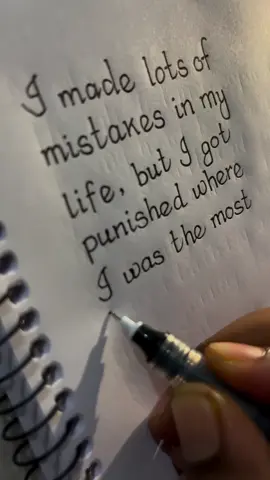 I made lots of
mistakes in my
life, but I got
punished where
I was the most